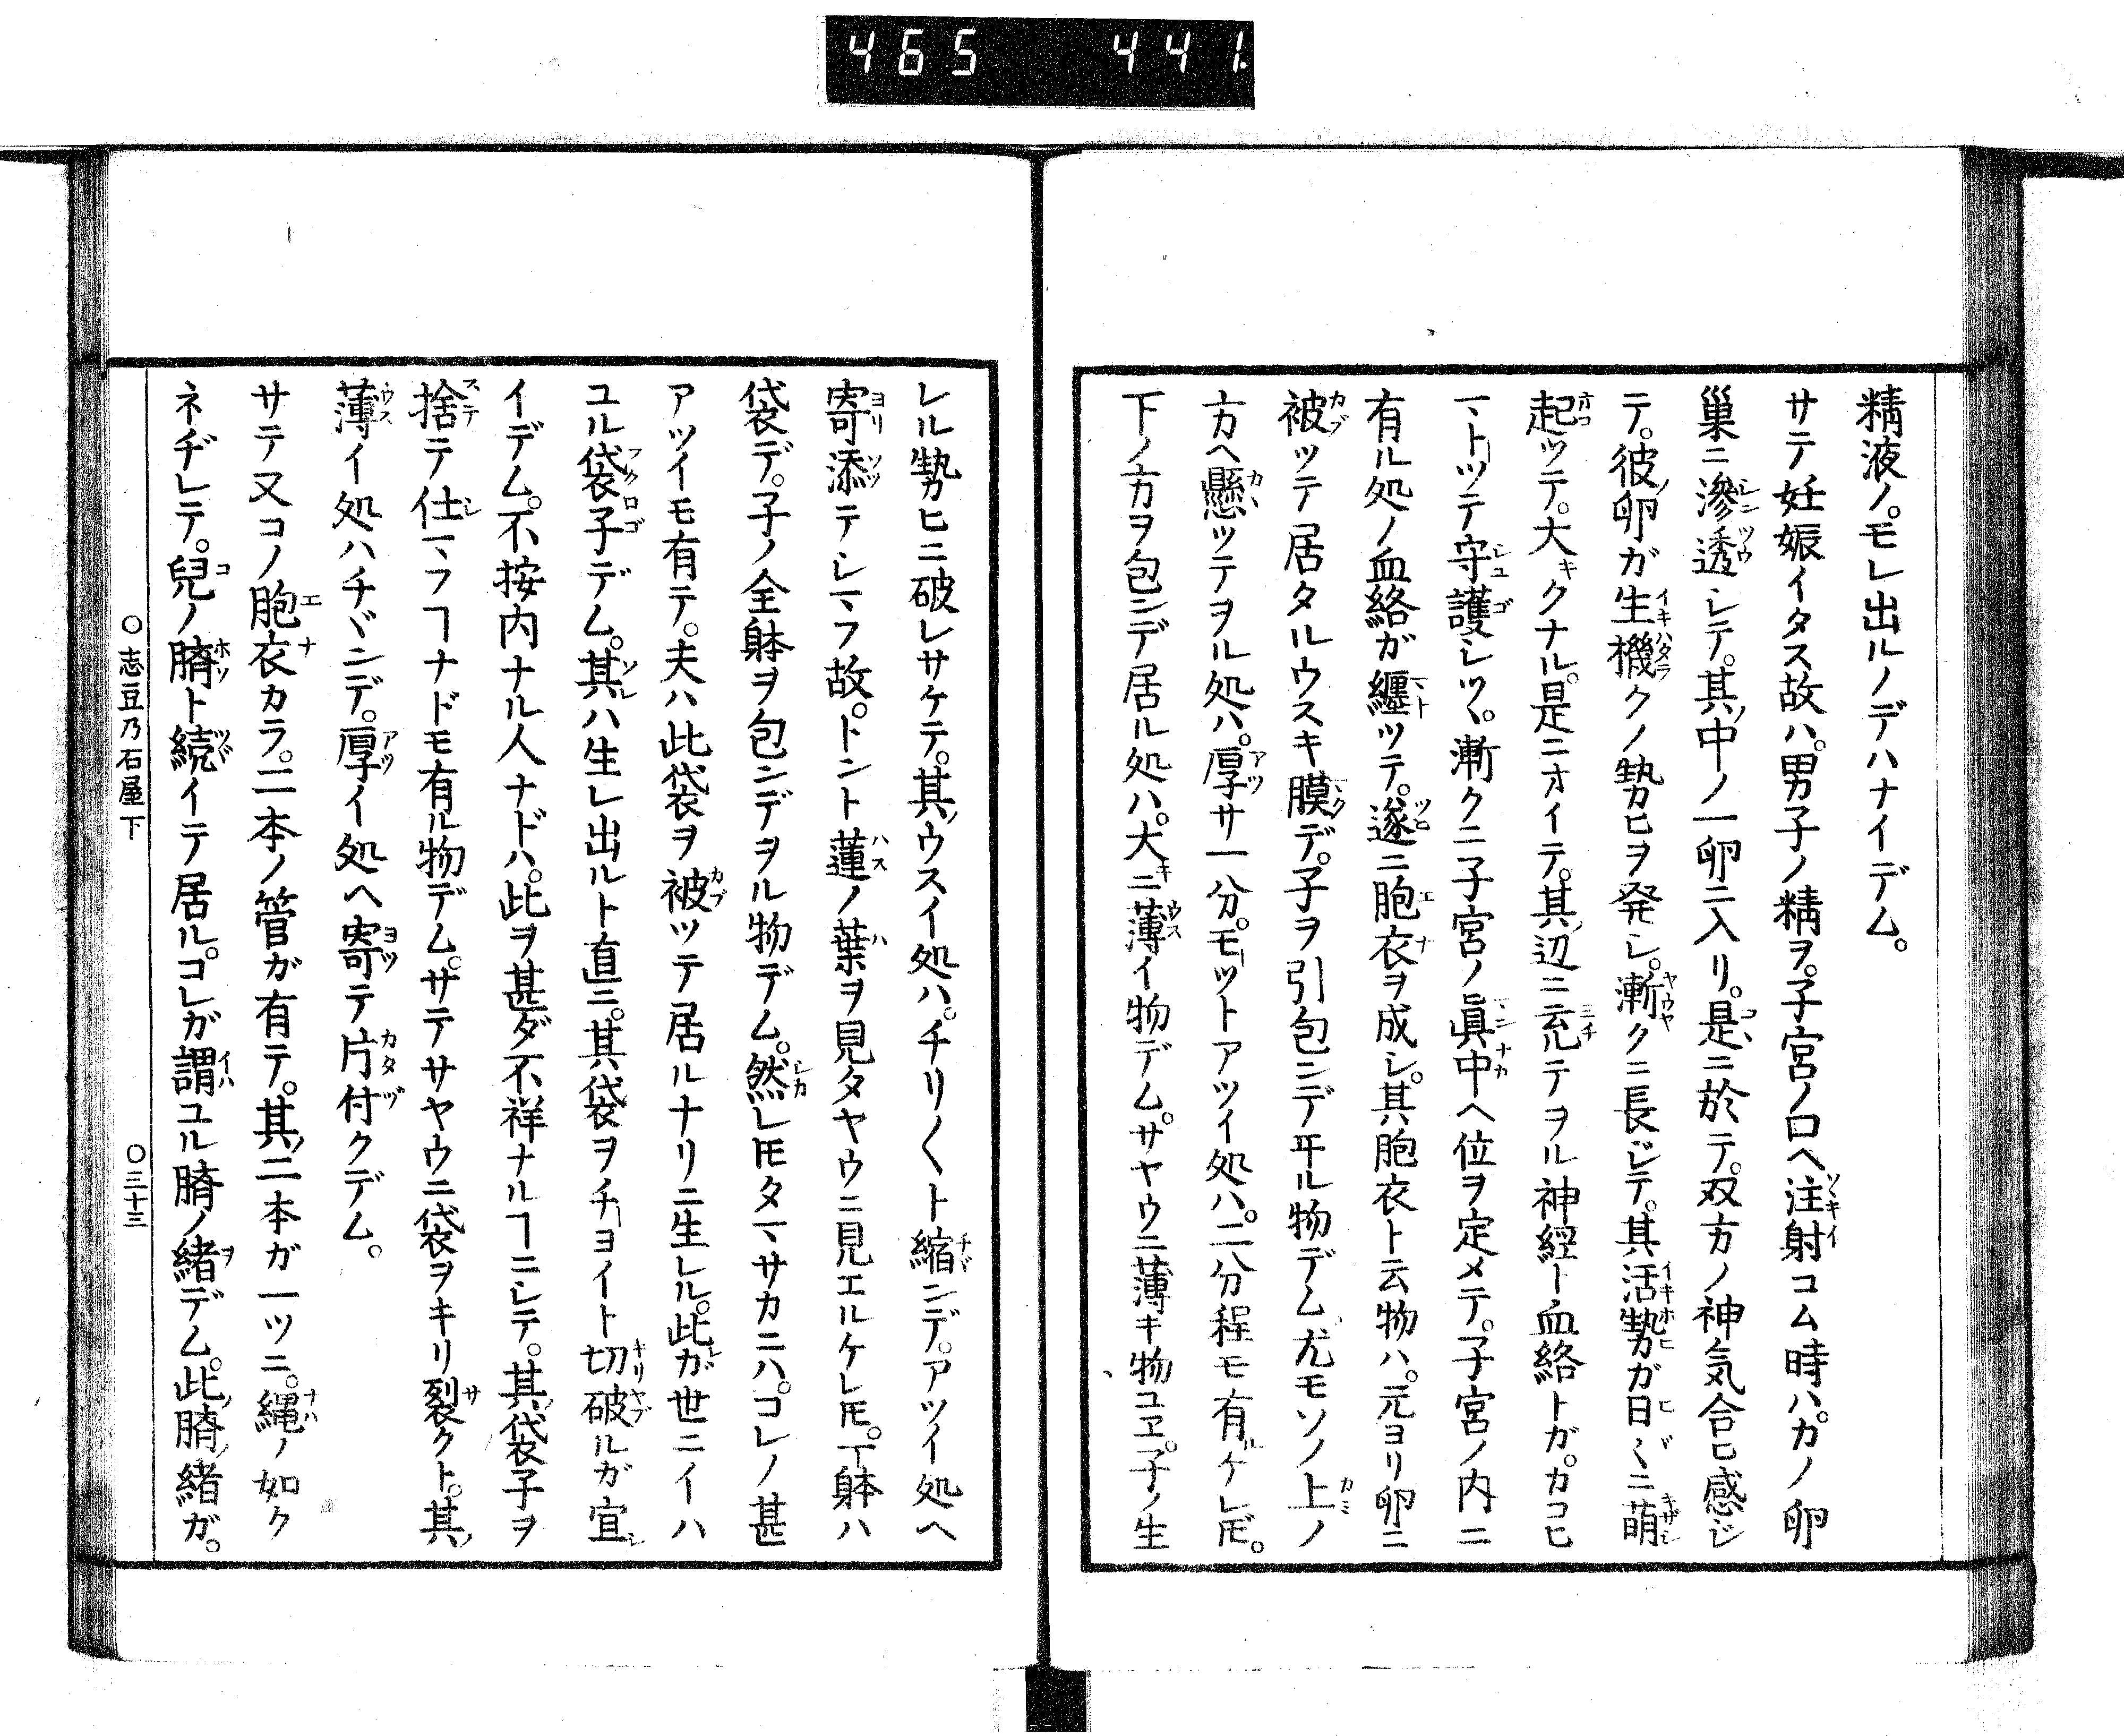 465 441.
精液ノ。モレ出ルノデハナイデム。
サテ妊娠イタス故ハ。男子ノ精ヲ。子宮ノ口ヘ注射コム時ハ。カノ卵
巣ニ滲透シテ。其ノ中ノ一卵ニ入リ。是ニ於テ。双方ノ神気合ヒ感ジ
テ。彼ノ卵ガ生機クノ勢ヒヲ発シ。漸クニ長ジテ。其活勢ガ日〻ニ萌
起ツテ。大キクナル。是ニオイテ。其ノ辺ニ充テヲル神経ト血絡トガ。カコヒ
マトツテ守護シツヽ。漸クニ子宮ノ真中ヘ位ヲ定メテ。子宮ノ内ニ
有ル処ノ血絡ガ纏ツテ。遂ニ胞衣ヲ成シ。其胞衣ト云物ハ。元ヨリ卵ニ
被ツテ居タルウスキ膜デ。子ヲ引包ンデ𠦄ル物デム。尤モソノ上ノ
方ヘ懸ツテヲル処ハ。厚サ一分。モツトアツイ処ハ。二分程モ有ルケレ𪜈。
下ノ方ヲ包ンデ居ル処ハ。大キニ薄イ物デム。サヤウニ薄キ物ユヱ。子ノ生
レル勢ヒニ破レサケテ。其ノウスイ処ハ。チリ〳〵ト縮ンデ。アツイ処ヘ
寄添テシマフ故。トント蓮ノ葉ヲ見タヤウニ見エルケレ𪜈。丁躰ハ
袋デ。子ノ全躰ヲ包ンデヲル物デム。然レ𪜈タマサカニハ。コレノ甚
アツイモ有テ。夫ハ此袋ヲ被ツテ居ルナリニ生レル。此ガ世ニイハ
ユル袋子デム。其ハ生レ出ルト直ニ。其袋ヲチヨイト切破ルガ宜
イデム。不按内ナル人ナドハ。此ヲ甚ダ不祥ナルヿニシテ。其ノ袋子ヲ
捨テ仕マフヿナドモ有ル物デム。サテサヤウニ袋ヲキリ裂クト。其ノ
薄イ処ハチヾンデ。厚イ処ヘ寄テ片付クデム。
サテ又コノ胞衣カラ。二本ノ管ガ有テ。其ノ二本ガ一ツニ。縄ノ如ク
ネヂレテ。兒ノ臍ト続イテ居ル。コレガ謂ユル臍ノ緒デム。此ノ臍ノ緒ガ。
〇志豆乃石屋下 〇三十三